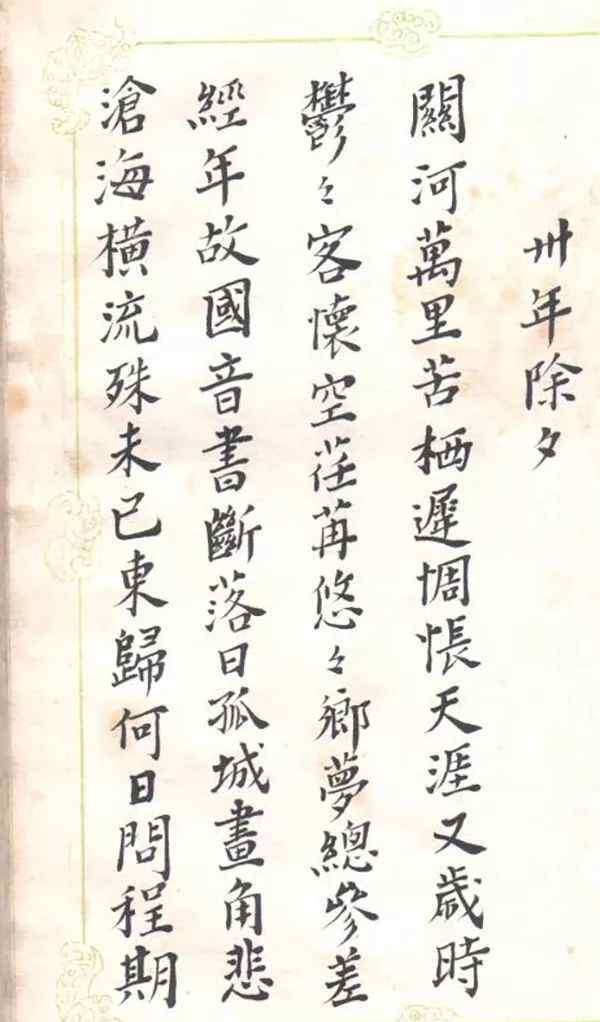 卅年除夕
關河萬里苦栖遲惆悵天涯又歲時
鬱々客懷空荏苒悠々鄉夢總參差
經年故國音書斷落日孤城畫角悲
滄海橫流殊未已東歸何日問程期